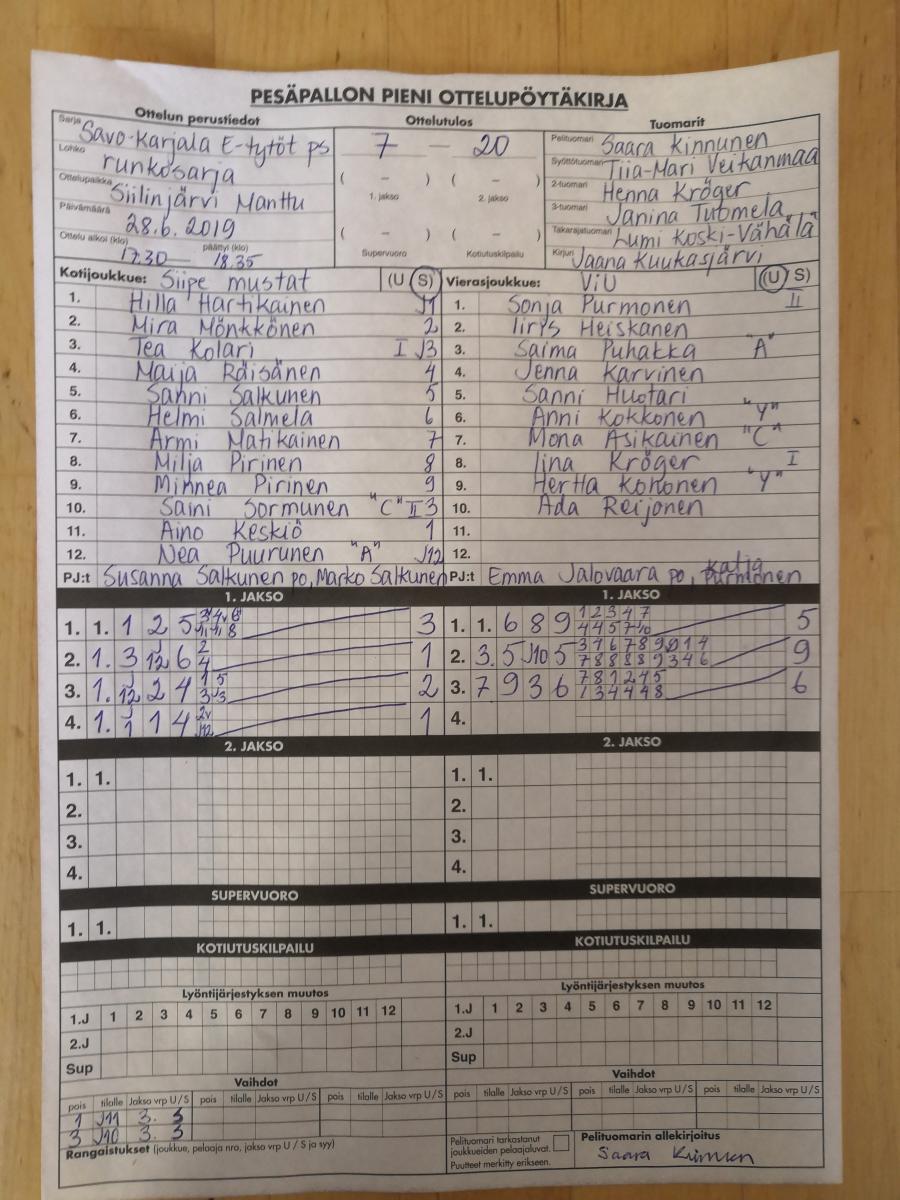 PESÄPALLON PIENI OTTELUPÖYTÄKIRJA
Ottelun perustiedot Ottelutulos Tuomarit
Sarja Savo-Karjala E-tytöt ps
Lohko runkosarja
Ottelupaikka Siilinjärvi Manttu
Päivämäärä 28.6.2019
Ottelu alkoi (klo) 17.30 päättyi (klo) 18.35
7 – 20
( – ) ( – )
1. jakso 2. jakso
( – ) ( – )
Supervuoro Kotiutuskilpailu
Pelituomari Saara Kinnunen
Syöttötuomari Tiia-Mari Veikanmaa
2-tuomari Henna Kröger
3-tuomari Janina Tuomela
Takarajatuomari Lumi Koski-Vähälä
Kirjuri Jaana Kuukasjärvi
Kotijoukkue: Siipe mustat (U S)
1. Hilla Hartikainen J1
2. Mira Mönkkönen 2
3. Tea Kolari I J3
4. Maija Räisänen 4
5. Sanni Salkunen 5
6. Helmi Salmela 6
7. Armi Matikainen 7
8. Milja Pirinen 8
9. Minnea Pirinen 9
10. Saini Sormunen "C" II 3
11. Aino Keskiö 1
12. Nea Puurunen "A" J12
PJ:t Susanna Salkunen po, Marko Salkunen
Vierasjoukkue: ViU (U S)
1. Sonja Purmonen II
2. Iirys Heiskanen
3. Saima Puhakka "A"
4. Jenna Karvinen
5. Sanni Huotari
6. Anni Kokkonen "Y"
7. Mona Asikainen "C"
8. Iina Kröger I
9. Hertta Kononen "Y"
10. Ada Reijonen
11.
12.
PJ:t Emma Jalovaara po, Katja Purmonen
1. JAKSO
1. 1. 1 2 5 3
2. 1. 3 J12 6 2 4 1
3. 1. J12 2 4 1 5 3 J3 2
4. 1. J1 1 4 2v J12 1
1. JAKSO
1. 1. 6 8 9 1 2 3 4 7 4 4 5 7 10 5
2. 3. 5 J10 5 9
3. 7 9 3 6 7 8 1 2 4 5 1 3 4 4 4 8 6
4.
2. JAKSO
1. 1.
2.
3.
4.
2. JAKSO
1. 1.
2.
3.
4.
SUPERVUORO
1. 1.
SUPERVUORO
1. 1.
KOTIUTUSKILPAILU
KOTIUTUSKILPAILU
Lyöntijärjestyksen muutos
1.J 1 2 3 4 5 6 7 8 9 10 11 12
2.J
Sup
Lyöntijärjestyksen muutos
1.J 1 2 3 4 5 6 7 8 9 10 11 12
2.J
Sup
Vaihdot
pois tilalle Jakso vrp U/S pois tilalle Jakso vrp U/S pois tilalle Jakso vrp U/S
1 J11 3. S
3 J10 3. S
Vaihdot
pois tilalle Jakso vrp U/S pois tilalle Jakso vrp U/S pois tilalle Jakso vrp U/S
Rangaistukset (joukkue, pelaaja nro, jakso vrp U / S ja syy)
Pelituomari tarkastanut
joukkueiden pelaajaluvat.
Puutteet merkitty erikseen.
Pelituomarin allekirjoitus
Saara Kinnunen